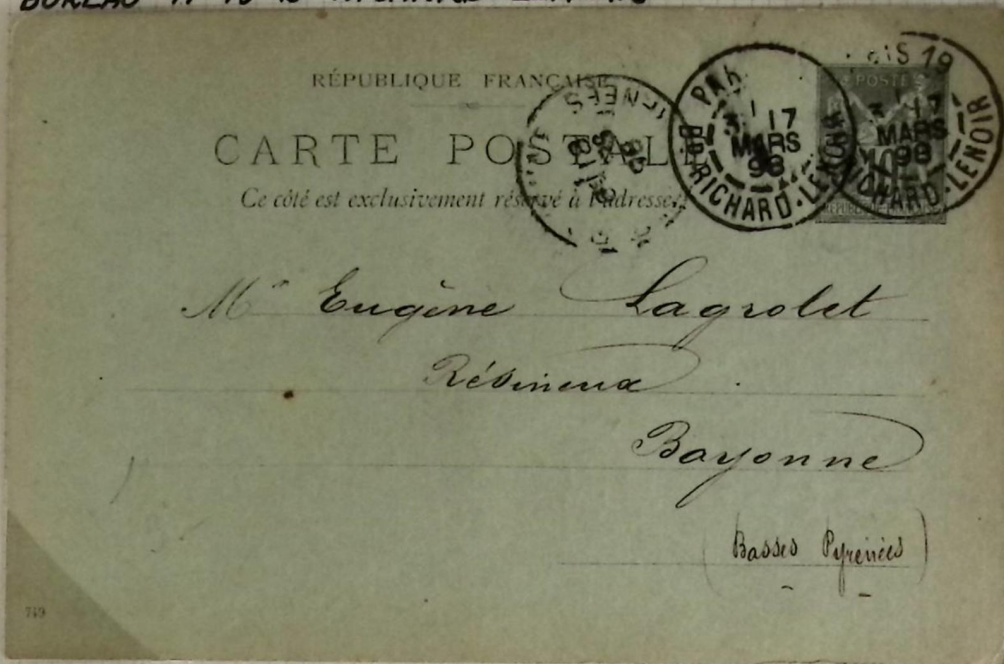 BUREAU N° 19 Bd RICHARD LENOIR
RÉPUBLIQUE FRANÇAISE
CARTE POSTALE
Ce côté est exclusivement réservé à l'adresse
PARIS 19
17
MARS
98
BD. RICHARD-LENOIR
IS 19
17
MARS
98
RICHARD-LENOIR
POSTES
Mr Eugène Lagrolet
Résineux
Bayonne
(Basses Pyrénées)
749